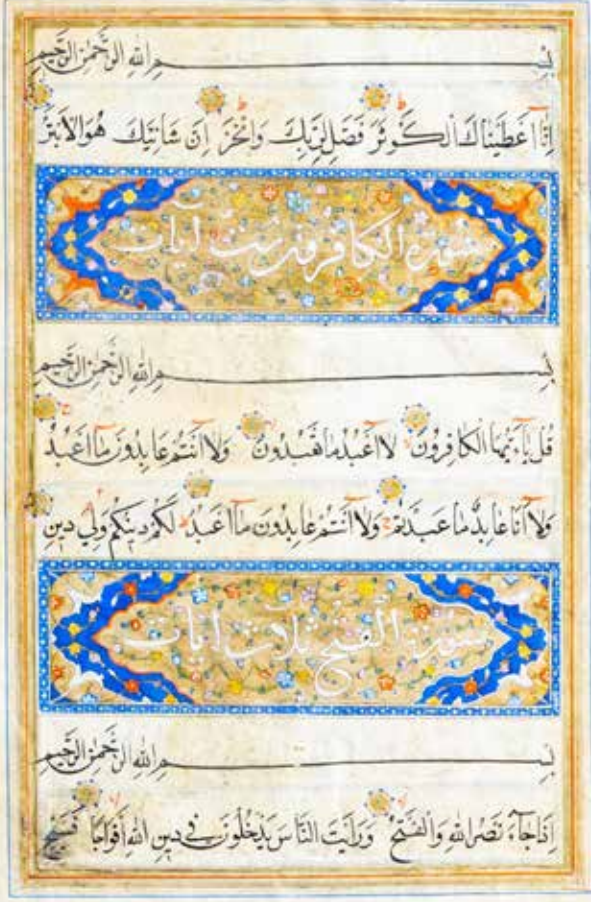 بِسْمِ اللهِ الرَّحْمٰنِ الرَّحِيمِ
اِنَّا اَعْطَيْنَاكَ الْكَوْثَرَ فَصَلِّ لِرَبِّكَ وَانْحَرْ اِنَّ شَانِئَكَ هُوَ الْاَبْتَرُ
سورة الكافرون ست آيات
بِسْمِ اللهِ الرَّحْمٰنِ الرَّحِيمِ
قُلْ يَا اَيُّهَا الْكَافِرُونَ لَا اَعْبُدُ مَا تَعْبُدُونَ وَلَا اَنْتُمْ عَابِدُونَ مَا اَعْبُدُ
وَلَا اَنَا عَابِدٌ مَا عَبَدْتُمْ وَلَا اَنْتُمْ عَابِدُونَ مَا اَعْبُدُ لَكُمْ دِينُكُمْ وَلِيَ دِينِ
سورة الفتح ثلاث آيات
بِسْمِ اللهِ الرَّحْمٰنِ الرَّحِيمِ
اِذَا جَاءَ نَصْرُ اللهِ وَالْفَتْحُ وَرَاَيْتَ النَّاسَ يَدْخُلُونَ فِي دِينِ اللهِ اَفْوَاجًا فَسَبِّحْ